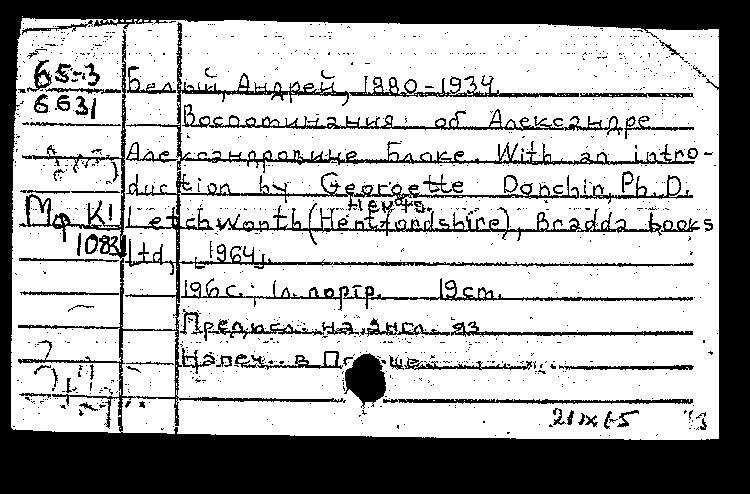 65-3
6631
Белый, Андрей, 1880-1934.
Воспоминания об Александре
Александровиче Блоке. With an intro-
duction by Georgette Donchin, Ph. D.
Herts.
Мф К1 Letchworth (Hertfordshire), Bradda books
1083 Ltd, [1964].
196 с.; 1 л. портр. 19 cm.
Предисл. на англ. яз.
Напеч. в Польше
21 IX 65